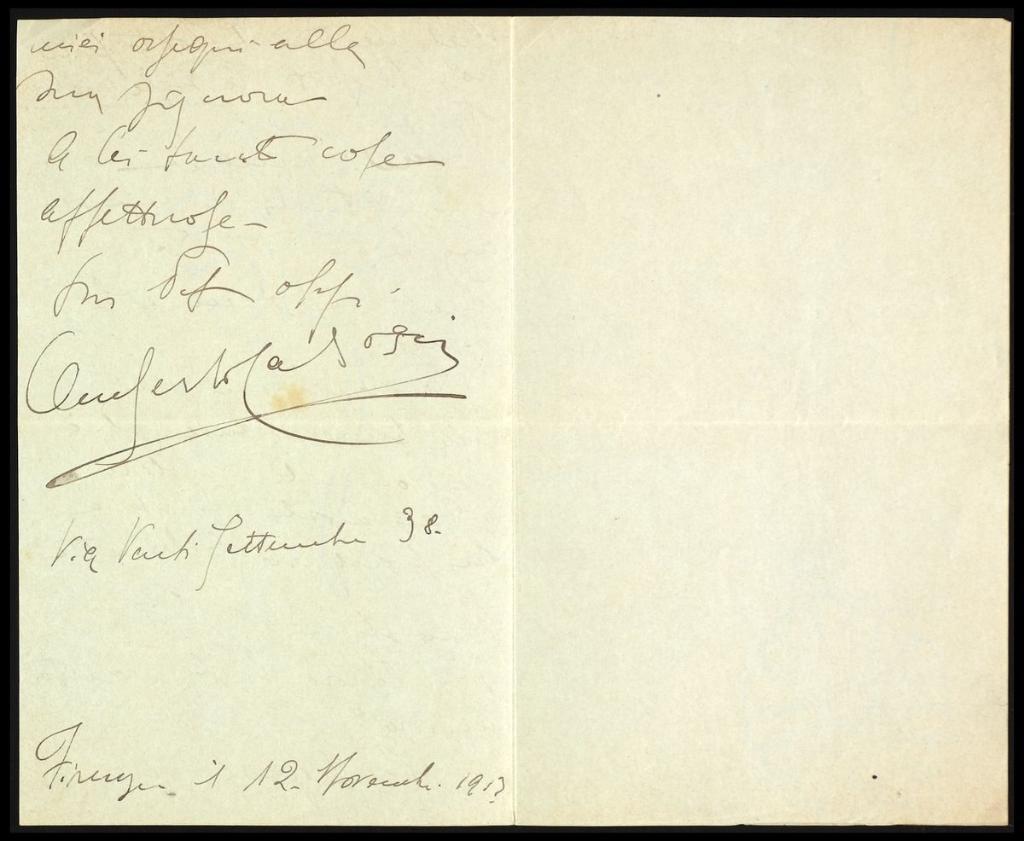 miei ossequi alla
sua signora
a lei tante cose
affettuose -
suo
Umberto
Via Venti Settembre 38.
Firenze il 12. Novembre. 1913